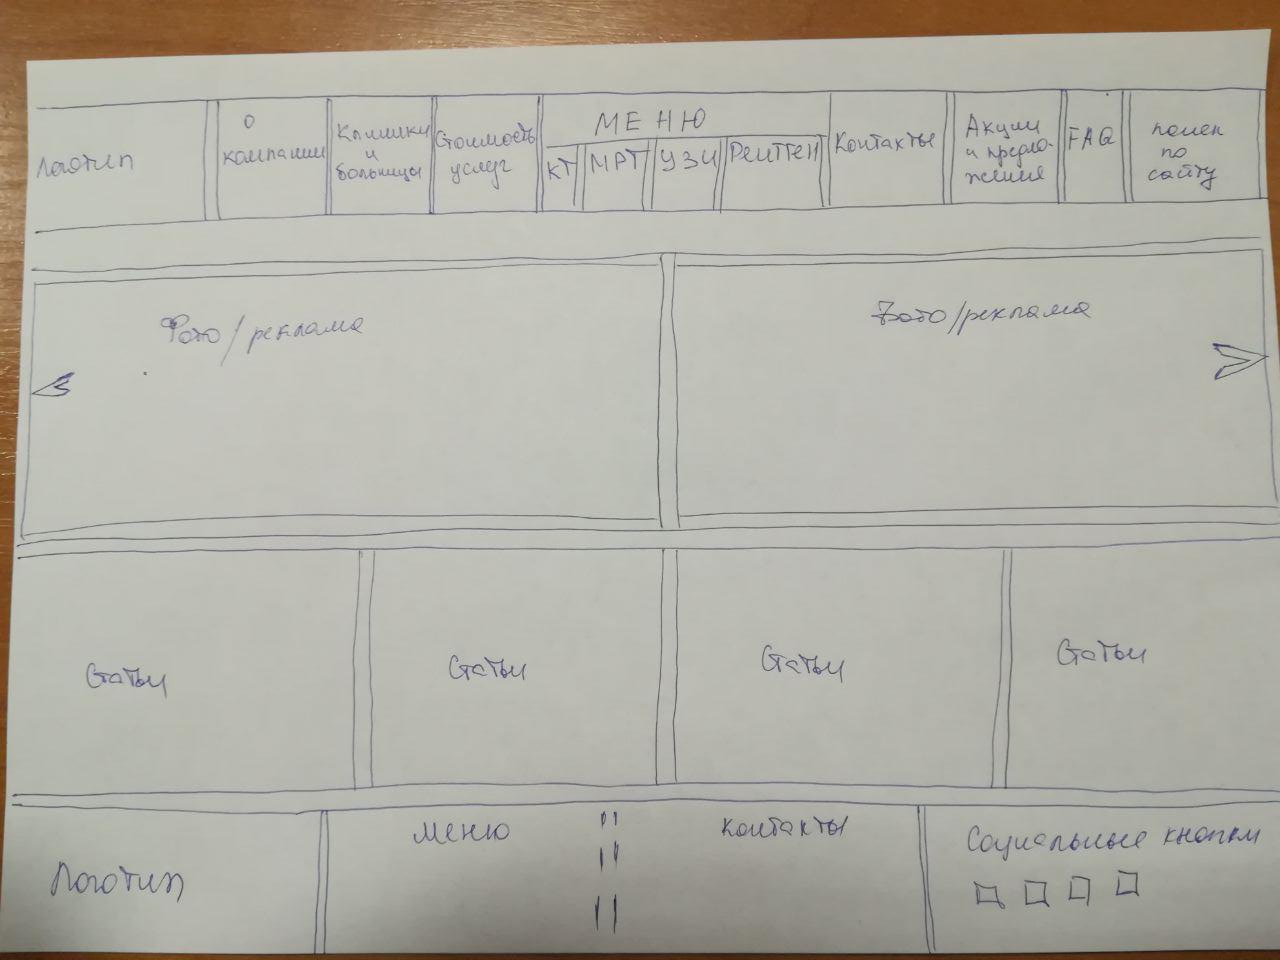 Логотип
О
компании
Клиники
и
больницы
Стоимость
услуг
МЕНЮ
КТ
МРТ
УЗИ
Рентген
Контакты
Акции
и предло-
жения
FAQ
поиск
по
сайту
Фото/реклама
Фото/реклама
Статьи
Статьи
Статьи
Статьи
Логотип
меню
контакты
Социальные кнопки